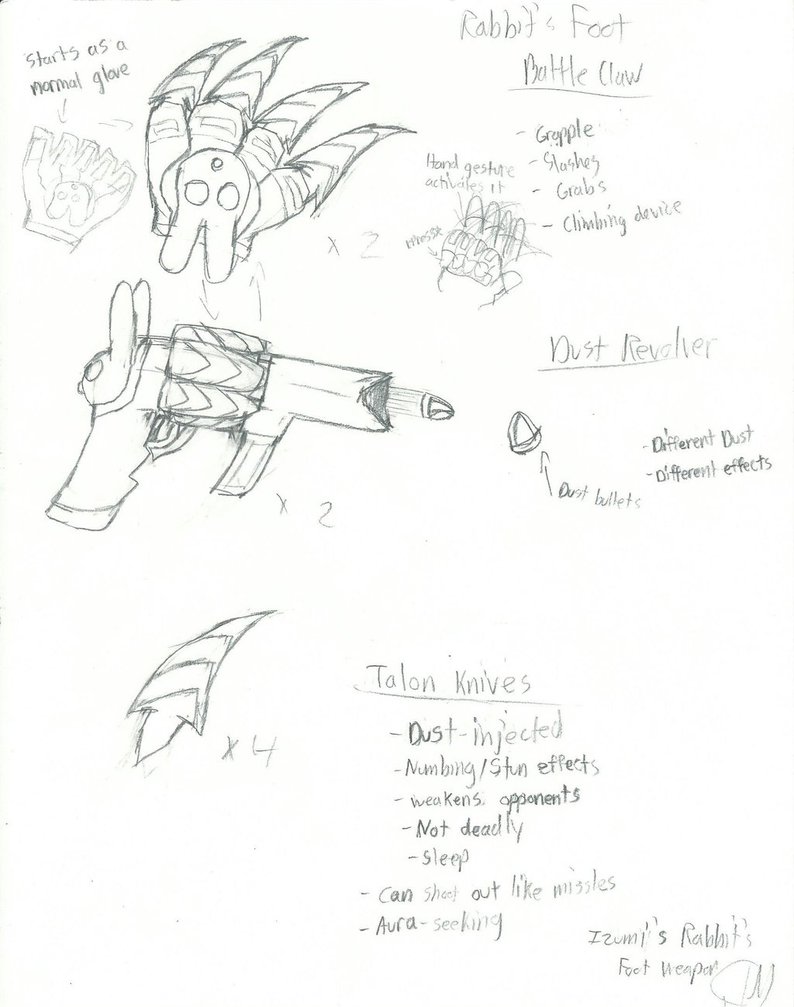 Rabbit's Foot
Battle Claw
Starts as a
normal glove
- Grapple
- Slashes
- Grabs
- Climbing device
Hand gesture
activates it
x 2
Dust Revolver
- Different Dust
- Different effects
Dust bullets
x 2
Talon Knives
- Dust-injected
- Numbing/Stun effects
- weakens opponents
- Not deadly
- Sleep
- Can shoot out like missles
- Aura-seeking
x 4
Izumi's Rabbit's
Foot weapon